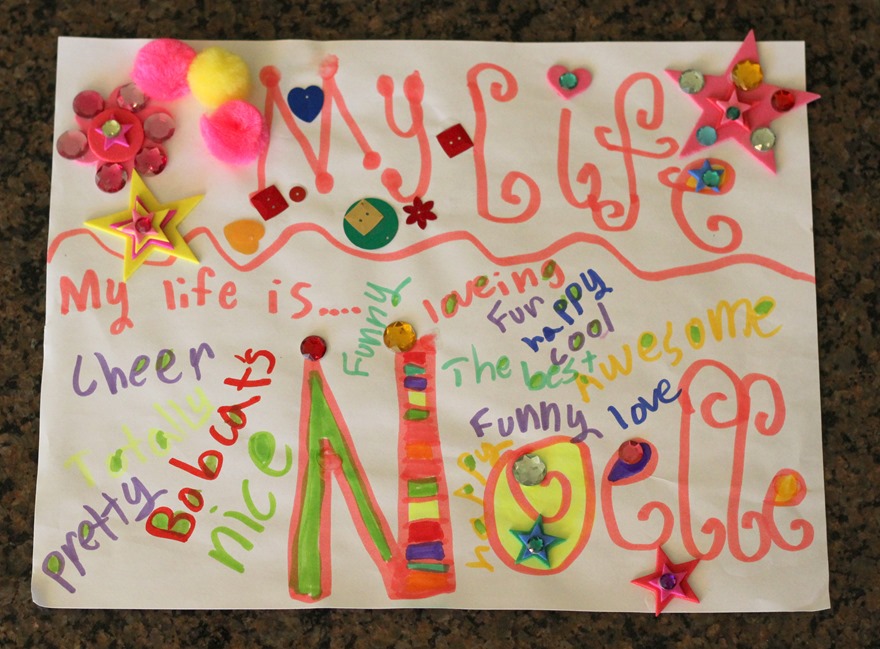 My Life
My life is.....
Funny
loveing
Fun
happy
cool
Cheer
Bobcats
The best
Awesome
Totally
nice
Funny
love
happy
pretty
Noelle